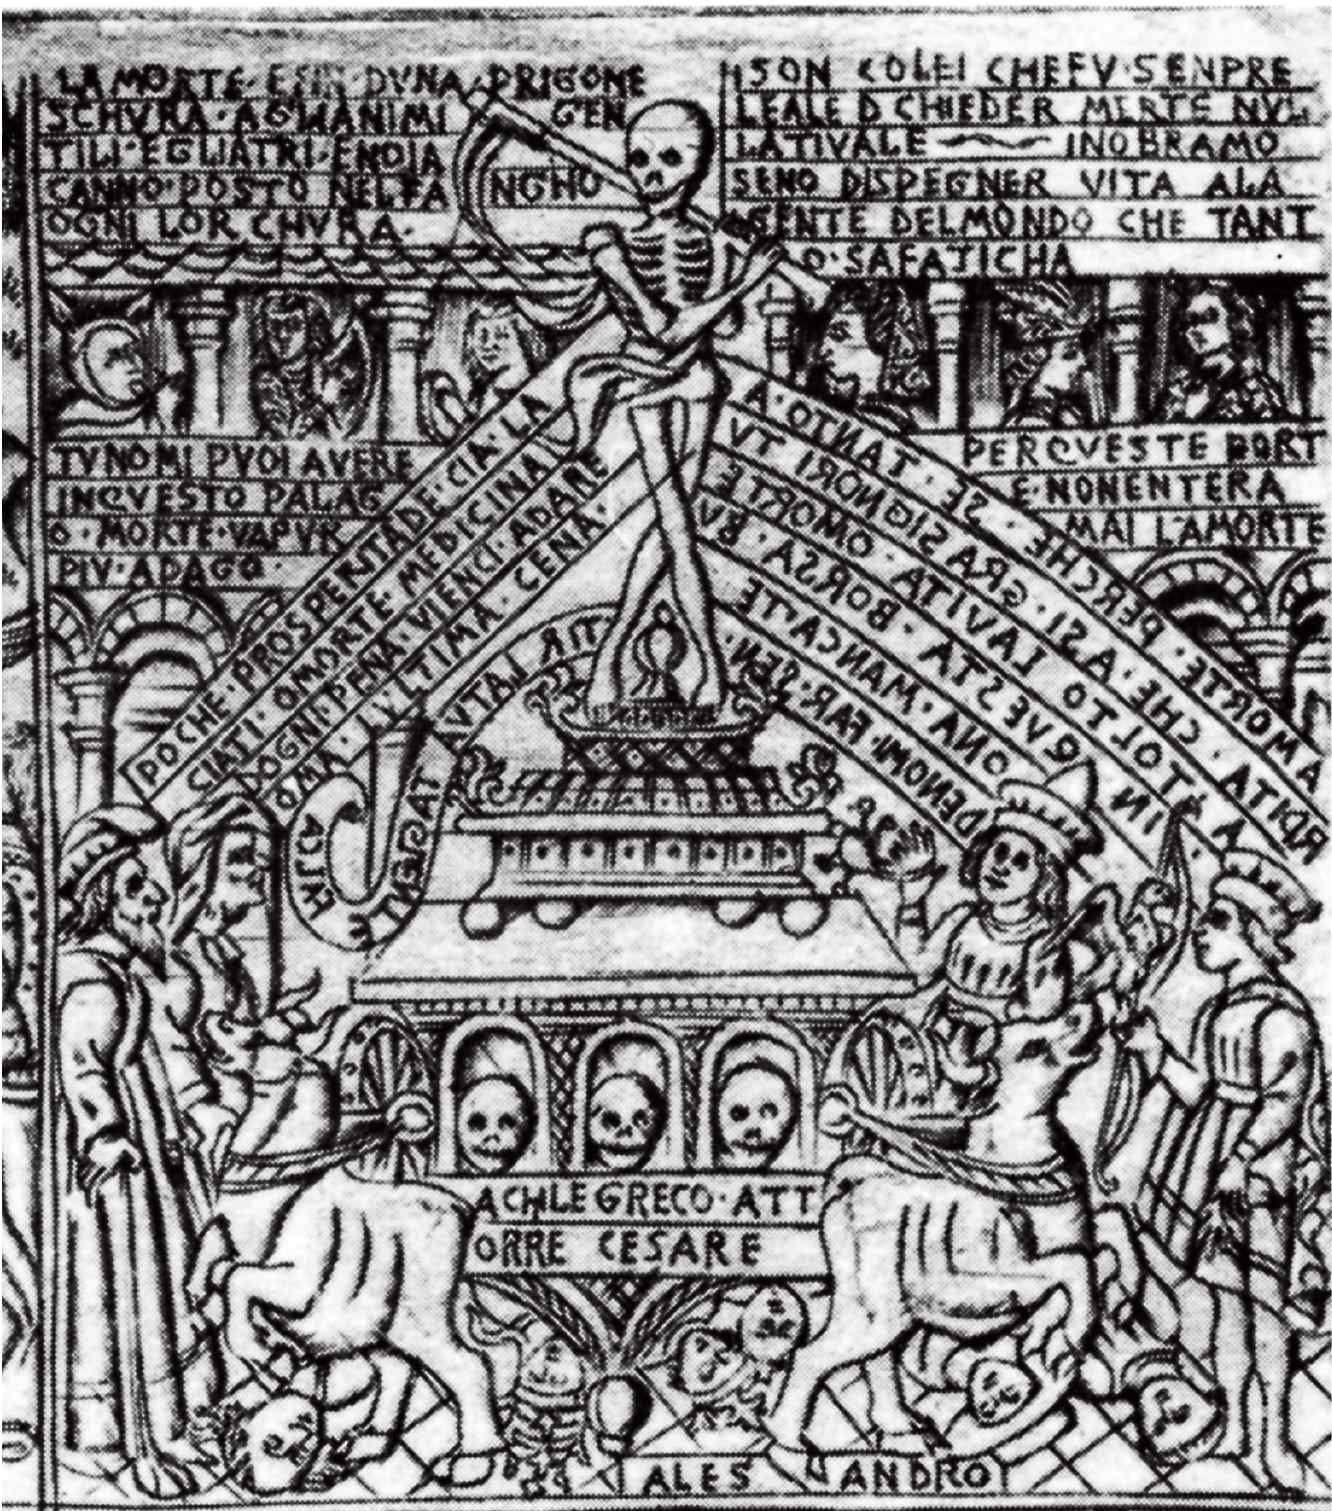 LA MORTE · E FIN · DVNA · PRIGONE
SCHVRA · AGLIANIMI GEN
TILI · EGLIATRI · ENOIA
CANNO · POSTO NELFA NGHO
OGNI LOR CHVRA ·
ISON COLEI CHEFV · SENPRE
LEALE D CHIEDER MERTE NVL
LATIVALE INOBRAMO
SENO DISPEGNER VITA ALA
GENTE DELMONDO CHE TANT
O · SAFATICHA
TVNOMI PVOI AVERE
INQVESTO PALAG
O · MORTE · VAPVR
PIV · ADAGO ·
PERQVESTE PORT
E · NONENTERA
MAI LAMORTE
POCHE · PROSPERITADE · CIA · LA
SCIATI · OMORTE · MEDICINA
DOGNI · PENA · VIENCI · ADARE
OMA · LVLTIMA · CENA ·
AMORTE · PERCHE · SE · TANTO · A
RDITA · CHE · LASI · GRASIGNORI TV
A TOLTO LAVITA · OMORTE
IN QVESTA BORSA · BV
ONA · MANCATE
DENOMI · FAR · SEN
ACHLE GRECO · ATT
ORRE CESARE
ALES ANDRO